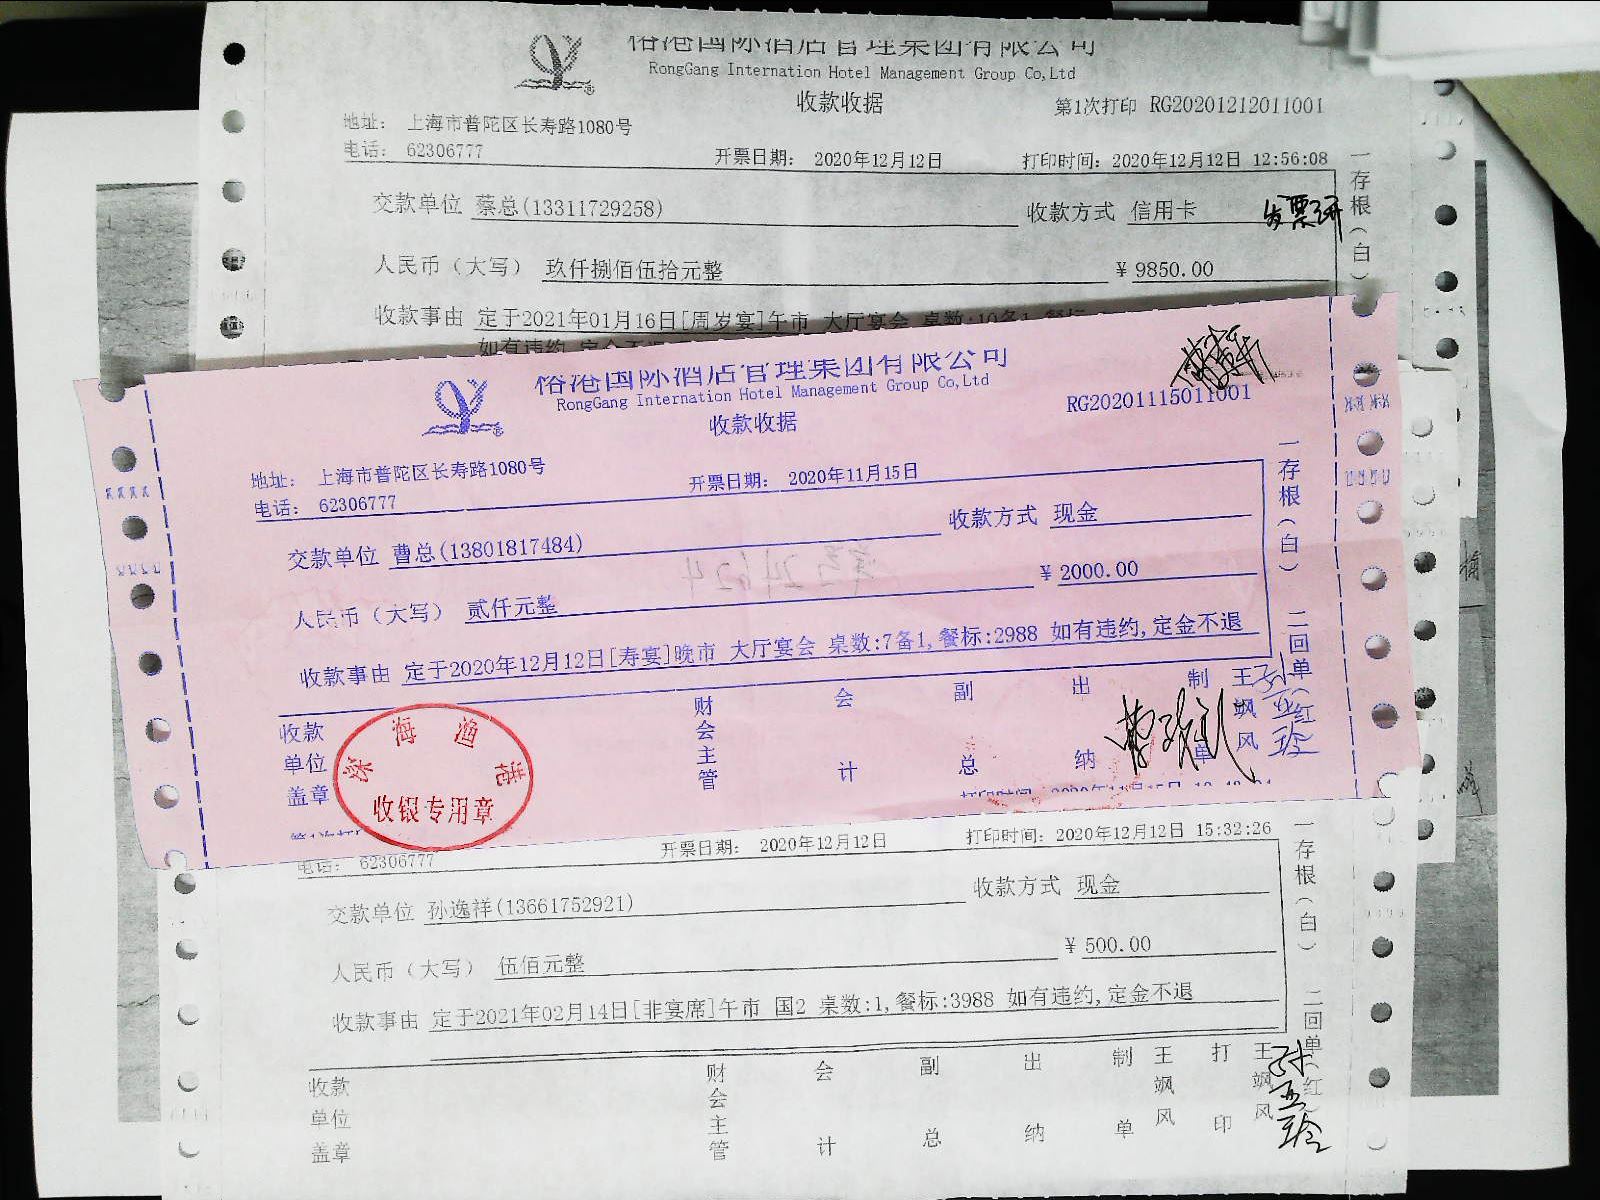 裕港国际酒店管理集团有限公司
RongGang Internation Hotel Management Group Co,Ltd
收款收据
第1次打印 RG20201212011001
地址： 上海市普陀区长寿路1080号
电话： 62306777
开票日期： 2020年12月12日
打印时间：2020年12月12日 12:56:08
交款单位 蔡总(13311729258)
收款方式 信用卡
发票
人民币（大写） 玖仟捌佰伍拾元整
¥ 9850.00
收款事由 定于2021年01月16日[周岁宴]午市 大厅宴会 桌数:10备1,餐标
如有违约,定金不退
一存根（白）
裕港国际酒店管理集团有限公司
RongGang Internation Hotel Management Group Co,Ltd
收款收据
RG20201115011001
地址： 上海市普陀区长寿路1080号
电话： 62306777
开票日期： 2020年11月15日
交款单位 曹总(13801817484)
收款方式 现金
人民币（大写） 贰仟元整
¥ 2000.00
收款事由 定于2020年12月12日[寿宴]晚市 大厅宴会 桌数:7备1,餐标:2988 如有违约,定金不退
收款单位盖章
财会主管
会计
副总
出纳
制单
王飒风
深海渔港
收银专用章
一存根（白） 二回单（红）
电话： 62306777
开票日期： 2020年12月12日
打印时间：2020年12月12日 15:32:26
交款单位 孙逸祥(13661752921)
收款方式 现金
人民币（大写） 伍佰元整
¥ 500.00
收款事由 定于2021年02月14日[非宴席]午市 国2 桌数:1,餐标:3988 如有违约,定金不退
收款单位盖章
财会主管
会计
副总
出纳
制单
王飒风
打印
王飒风
一存根（白） 二回单（红）